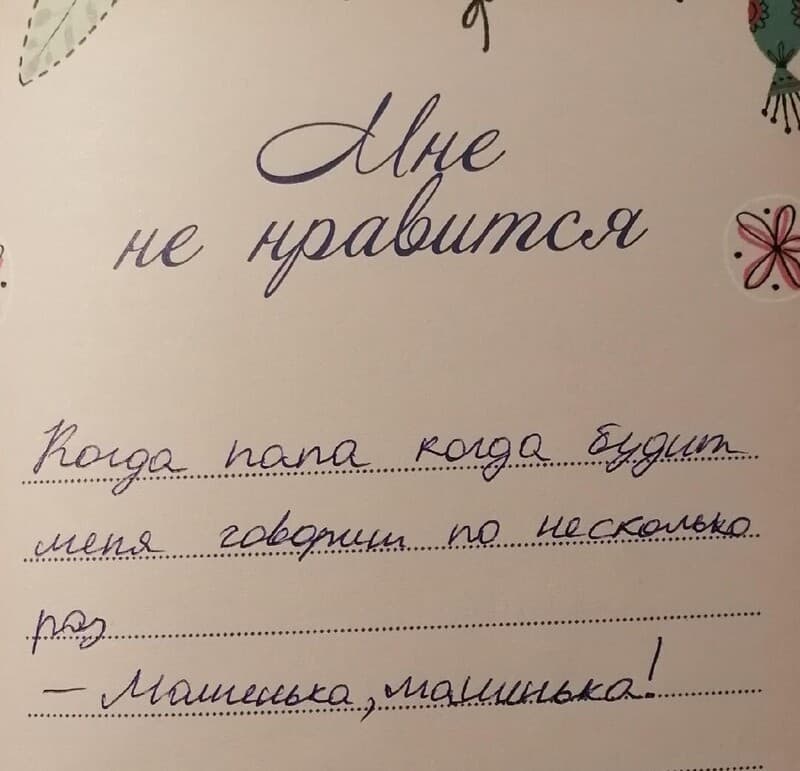 Мне
не нравится
Когда папа когда будит
меня говорит по несколько
раз
— Машенька, машинька!